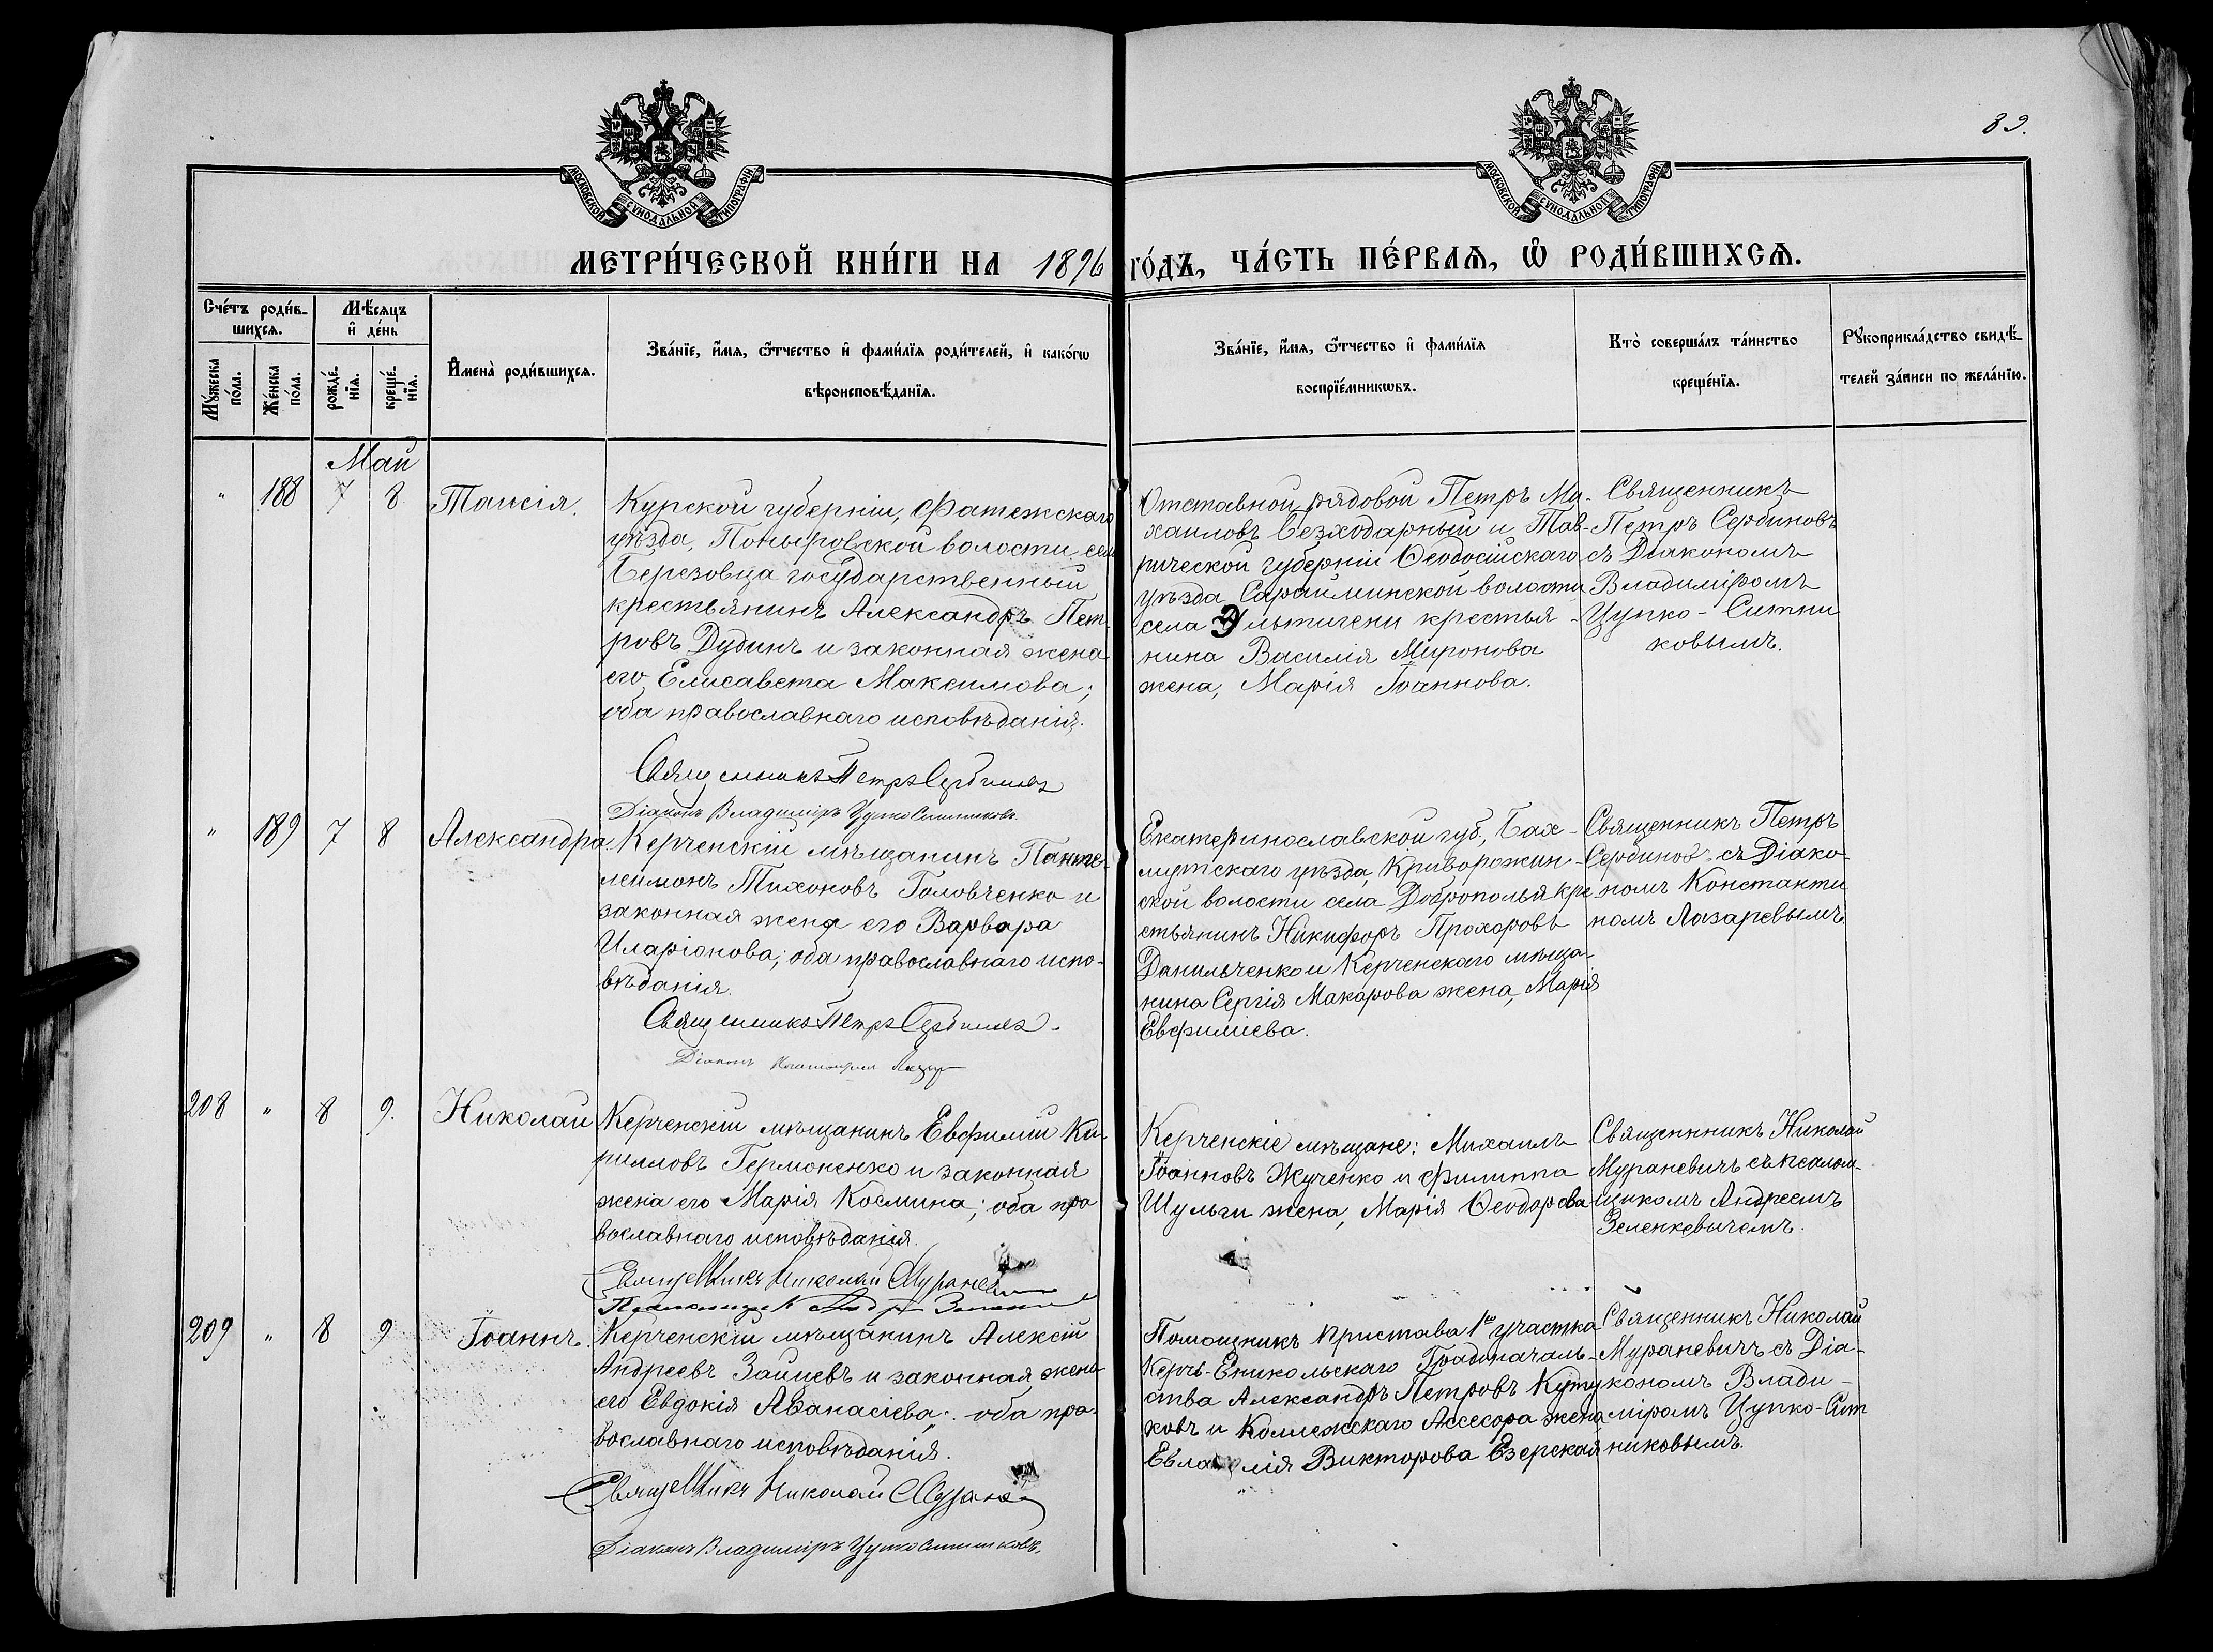 МОСКОВСКОЙ СѴНОДАЛЬНОЙ ТИПОГРАФІИ
МОСКОВСКОЙ СѴНОДАЛЬНОЙ ТИПОГРАФІИ
89.
МЕТРИ́ЧЕСКОЙ КНИ́ГИ НА 1896 ГО́ДЪ, ЧА́СТЬ ПЕ́РВАѦ, Ѡ҆ РОДИ́ВШИХСѦ.
Сче́тъ роди́в-
шихсѧ.
Мѣ́сѧцъ
и҆ де́нь
Мꙋ́жеска по́ла.
Же́нска по́ла.
рожде́-
нїѧ.
креще́-
нїѧ.
И҆мена̀ роди́вшихсѧ.
Зва́нїе, и҆́мѧ, ѻ҆́тчество и҆ фами́лїѧ роди́телей, и҆ како́гѡ
вѣроисповѣ́данїѧ.
Зва́нїе, и҆́мѧ, ѻ҆́тчество и҆ фами́лїѧ
воспрїе́мникѡвъ.
Кто̀ соверша́лъ та́инство
креще́нїѧ.
Рꙋкоприкла́дство свидѣ́-
телей за́писи по жела́нїю.
Май
" 188 7 8 Таисія.
Курской губерніи, Фатежскаго
уѣзда, Поныровской волости села
Березовца государственный
крестьянинъ Александръ Пет-
ровъ Дудинъ и законная жена
его Елисавета Максимова;
оба православнаго исповѣданія.
Священникъ Петръ Сербиновъ
Діаконъ Владиміръ Цупко Ситниковъ.
Отставной рядовой Петръ Ми-
хаиловъ Безходарный и Тав-
рической губерніи Ѳеодосійскаго
уѣзда Сарайминской волости
села Эльтигени крестья-
нина Василія Миронова
жена, Марія Іоаннова.
Священникъ
Петръ Сербиновъ
съ Діакономъ
Владиміромъ
Цупко-Ситни
ковымъ.
" 189 7 8 Александра
Керченскій мѣщанинъ Панте-
леимонъ Тихоновъ Головченко и
законная жена его Варвара
Иларіонова; оба православнаго испо-
вѣданія.
Священникъ Петръ Сербиновъ.
Діаконъ Константинъ Лазар
Екатеринославской губ., Бах-
мутскаго уѣзда, Криворожин-
ской волости села Доброполья кре
стьянинъ Никифоръ Прохоровъ
Данильченко и Керченскаго мѣща-
нина Сергія Макарова жена, Марія
Евфиміева.
Священникъ Петръ
Сербиновъ съ Діако-
номъ Константи
номъ Лазаревымъ
208 " 8 9. Николай
Керченскій мѣщанинъ Евфимій Ки-
рилловъ Гермоненко и законная
жена его Марія Космина; оба пра
вославнаго исповѣданія.
Священникъ Николай Мураневичъ
Керченскіе мѣщане: Михаилъ
Іоанновъ Жученко и Филиппа
Шульги жена, Марія Ѳеодорова
Священникъ Николай
Мураневичъ съ псалом-
щикомъ Андреемъ
Зеленкевичемъ.
209 " 8 9 Іоаннъ.
Керченскій мѣщанинъ Алексій
Андреевъ Зайцевъ и законная жена
его Евдокія Аѳанасіева; оба пра-
вославнаго исповѣданія.
Священникъ Николай Муране
Діаконъ Владиміръ Цупко Ситниковъ.
Помощникъ Пристава 1го участка
Керчь-Еникольскаго Градоначаль-
ства Александръ Петровъ Куту
ковъ и Коллежскаго Ассесора жена
Викторова Езерская
Священникъ Николай
Мураневичъ съ Діа-
кономъ Влади-
міромъ Цупко-Сит
никовымъ.